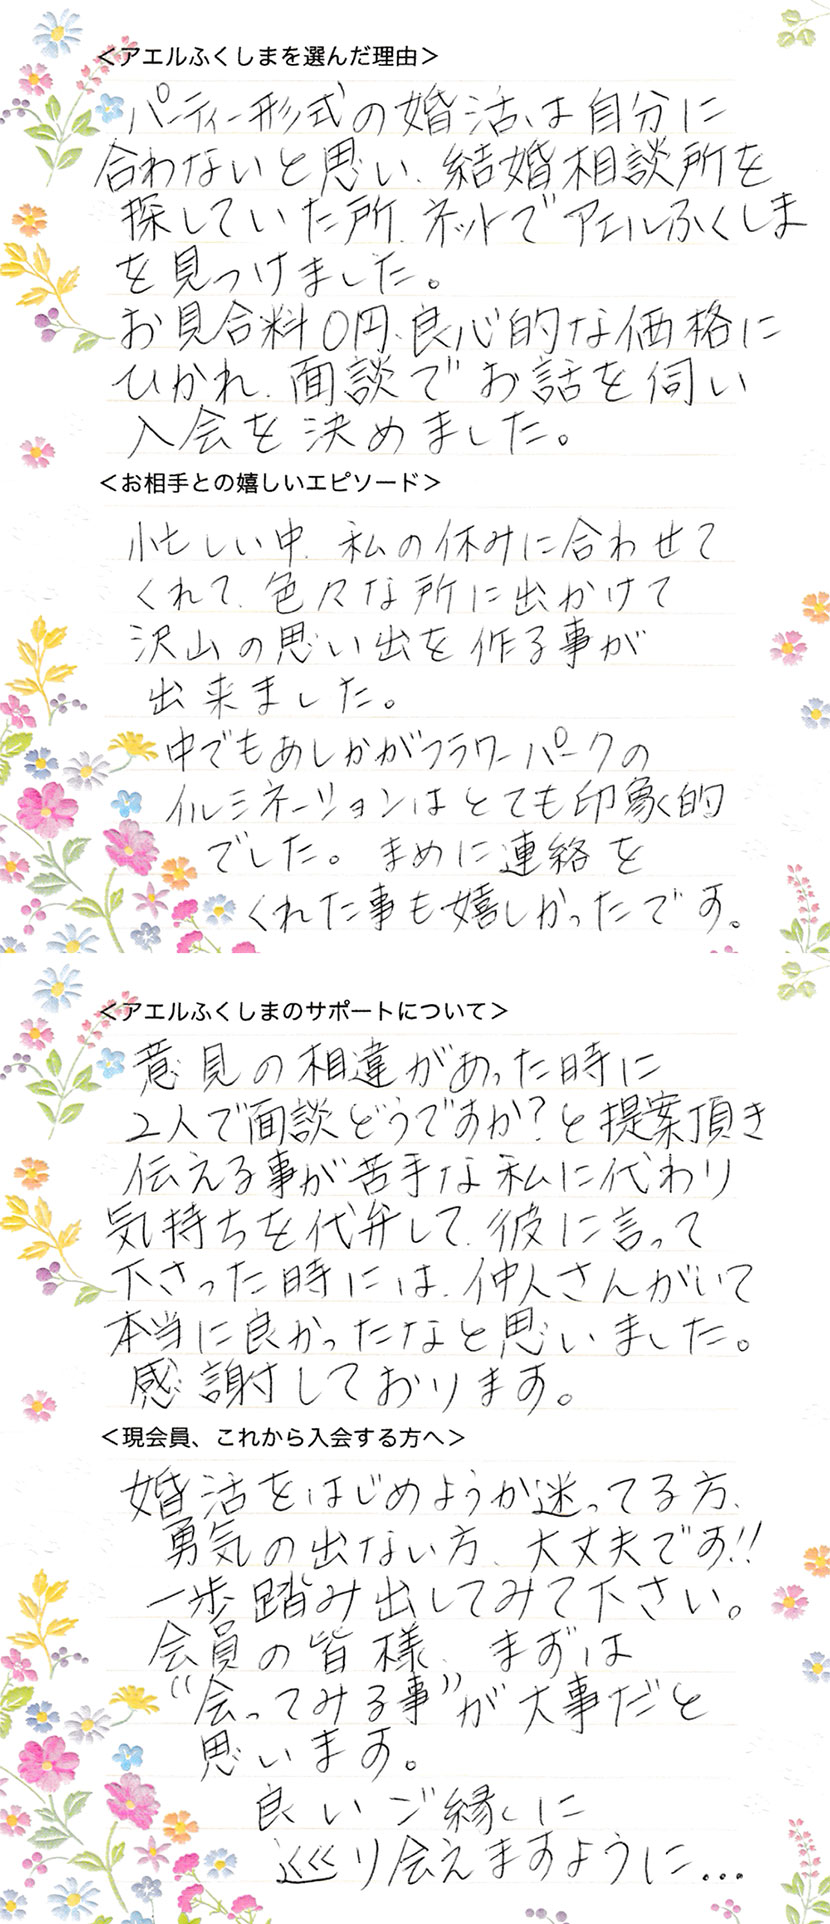 ＜アエルふくしまを選んだ理由＞
パーティー形式の婚活は自分に
合わないと思い、結婚相談所を
探していた所、ネットでアエルふくしま
を見つけました。
お見合料0円、良心的な価格に
ひかれ、面談でお話を伺い
入会を決めました。
＜お相手との嬉しいエピソード＞
忙しい中、私の休みに合わせて
くれて、色々な所に出かけて
沢山の思い出を作る事が
出来ました。
中でもあしかがフラワーパークの
イルミネーションはとても印象的
でした。まめに連絡を
くれた事も嬉しかったです。
＜アエルふくしまのサポートについて＞
意見の相違があった時に
2人で面談どうですか?と提案頂き
伝える事が苦手な私に代わり
気持ちを代弁して、彼に言って
下さった時には、仲人さんがいて
本当に良かったなと思いました。
感謝しております。
＜現会員、これから入会する方へ＞
婚活をはじめようか迷ってる方、
勇気の出ない方、大丈夫です!!
一歩踏み出してみて下さい。
会員の皆様、まずは
“会ってみる事”が大事だと
思います。
良いご縁に
巡り会えますように…